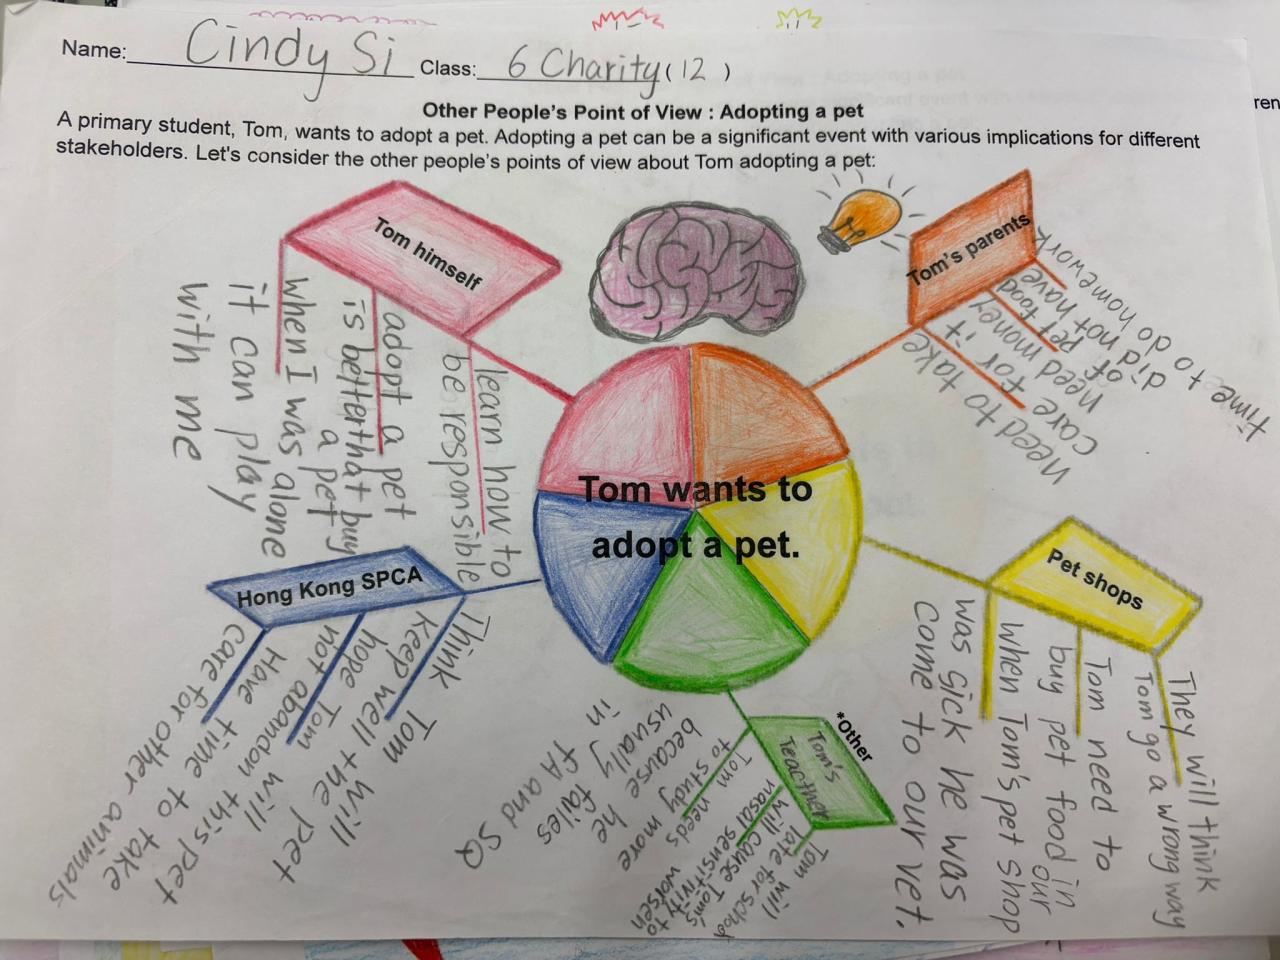 Name: Cindy Si Class: 6 Charity (12)
Other People's Point of View : Adopting a pet
A primary student, Tom, wants to adopt a pet. Adopting a pet can be a significant event with various implications for different
stakeholders. Let's consider the other people's points of view about Tom adopting a pet:
ren
Tom himself
learn how to
be responsible
adopt a pet
is betterthat buy
a pet
when I was alone
it can play
with me
Tom's parents
need to take
care for it
need money
of pet food
did not have
time to do homework
Tom wants to
adopt a pet.
Hong Kong SPCA
Think Tom will
keep well the pet
hope Tom will
not abandon this pet
Have time to take
care for other animals
Pet shops
They will think
Tom go a wrong way
Tom need to
buy pet food in our
When Tom's pet shop
was sick he was
come to our vet.
*Other
Tom's
Teacther
Tom will
late for school
will cause Tom's
nasal sensitivity to
worsen
Tom needs
to study more
because he
usually failes
in FA and SQ